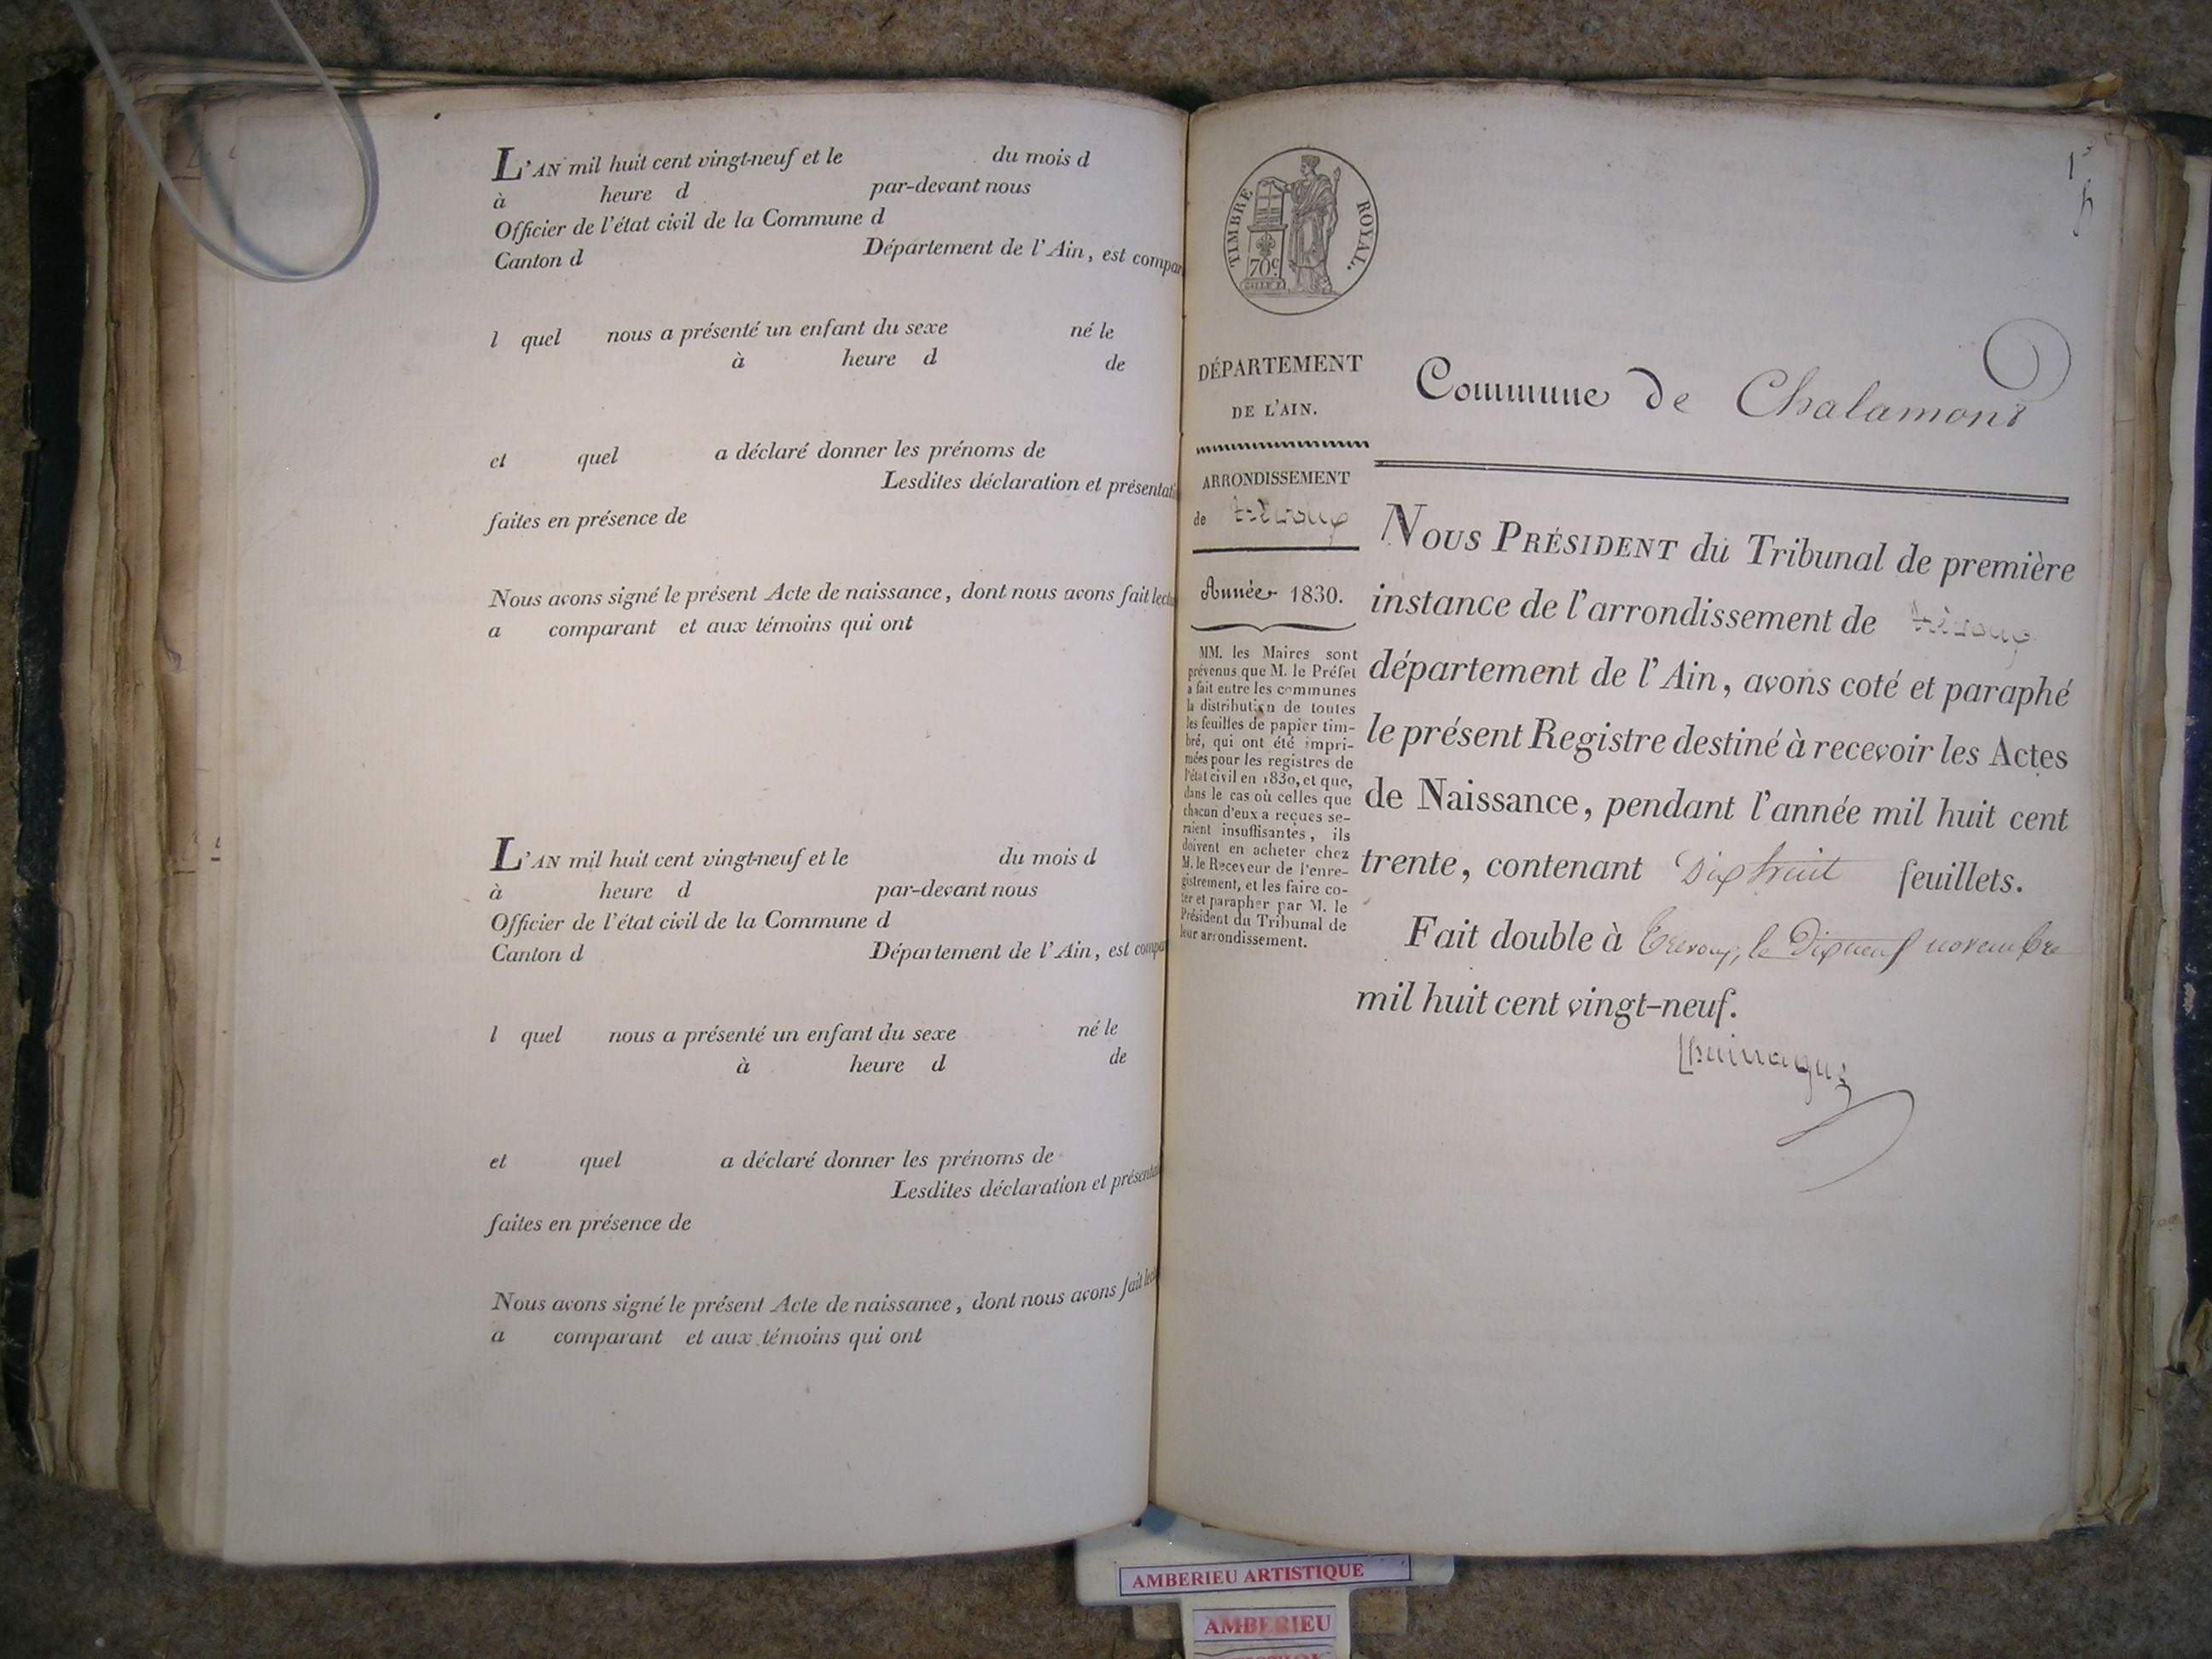 L'AN mil huit cent vingt-neuf et le du mois d
à heure d par-devant nous
Officier de l'état civil de la Commune d
Canton d Département de l'Ain, est compar
l quel nous a présenté un enfant du sexe né le
à heure d de
et quel a déclaré donner les prénoms de
Lesdites déclaration et présentati
faites en présence de
Nous avons signé le présent Acte de naissance, dont nous avons fait lectu
a comparant et aux témoins qui ont
L'AN mil huit cent vingt-neuf et le du mois d
à heure d par-devant nous
Officier de l'état civil de la Commune d
Canton d Département de l'Ain, est compa
l quel nous a présenté un enfant du sexe né le
à heure d de
et quel a déclaré donner les prénoms de
Lesdites déclaration et présenta
faites en présence de
Nous avons signé le présent Acte de naissance, dont nous avons fait lec
a comparant et aux témoins qui ont
TIMBRE ROYAL.
70c
DÉPARTEMENT
DE L'AIN.
ARRONDISSEMENT
de Trévoux
Année 1830.
MM. les Maires sont
prévenus que M. le Préfet
a fait entre les communes
la distribution de toutes
les feuilles de papier tim-
bré, qui ont été impri-
mées pour les registres de
l'état civil en 1830, et que,
dans le cas où celles que
chacun d'eux a reçues se-
raient insuffisantes, ils
doivent en acheter chez
M. le Receveur de l'enre-
gistrement, et les faire co-
ter et parapher par M. le
Président du Tribunal de
leur arrondissement.
Commune de Chalamont
NOUS PRÉSIDENT du Tribunal de première
instance de l'arrondissement de Trévoux
département de l'Ain, avons coté et paraphé
le présent Registre destiné à recevoir les Actes
de Naissance, pendant l'année mil huit cent
trente, contenant Dix huit feuillets.
Fait double à Trevoux, le Dix neuf novembre
mil huit cent vingt-neuf.
AMBERIEU ARTISTIQUE
AMBERIEU